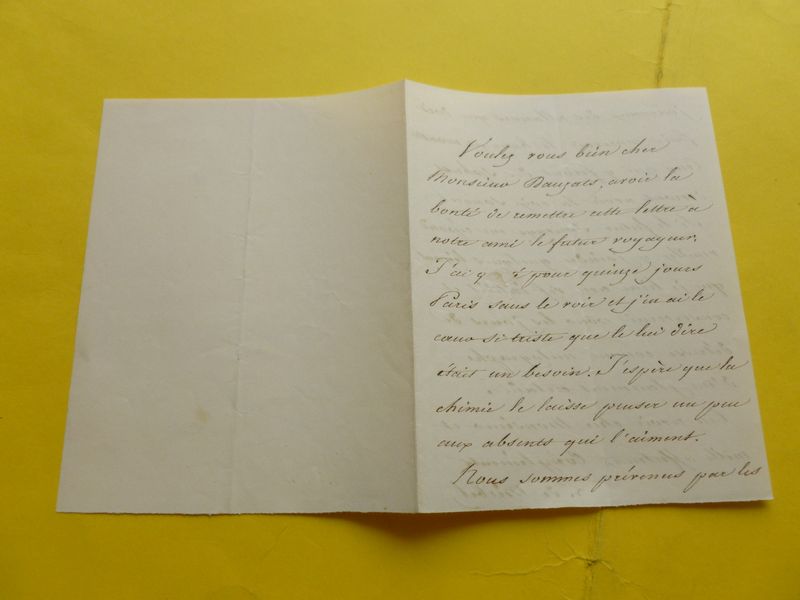 Voulez vous bien cher
Monsieur Dauzats, avoir la
bonté de remettre cette lettre à
notre ami le futur voyageur.
J'ai q é pour quinze jours
Paris sans le voir et j'en ai le
cœur si triste que le lui dire
était un besoin. J'espère que la
chimie le laisse penser un peu
aux absents qui l'aiment.
Nous sommes prévenus par les